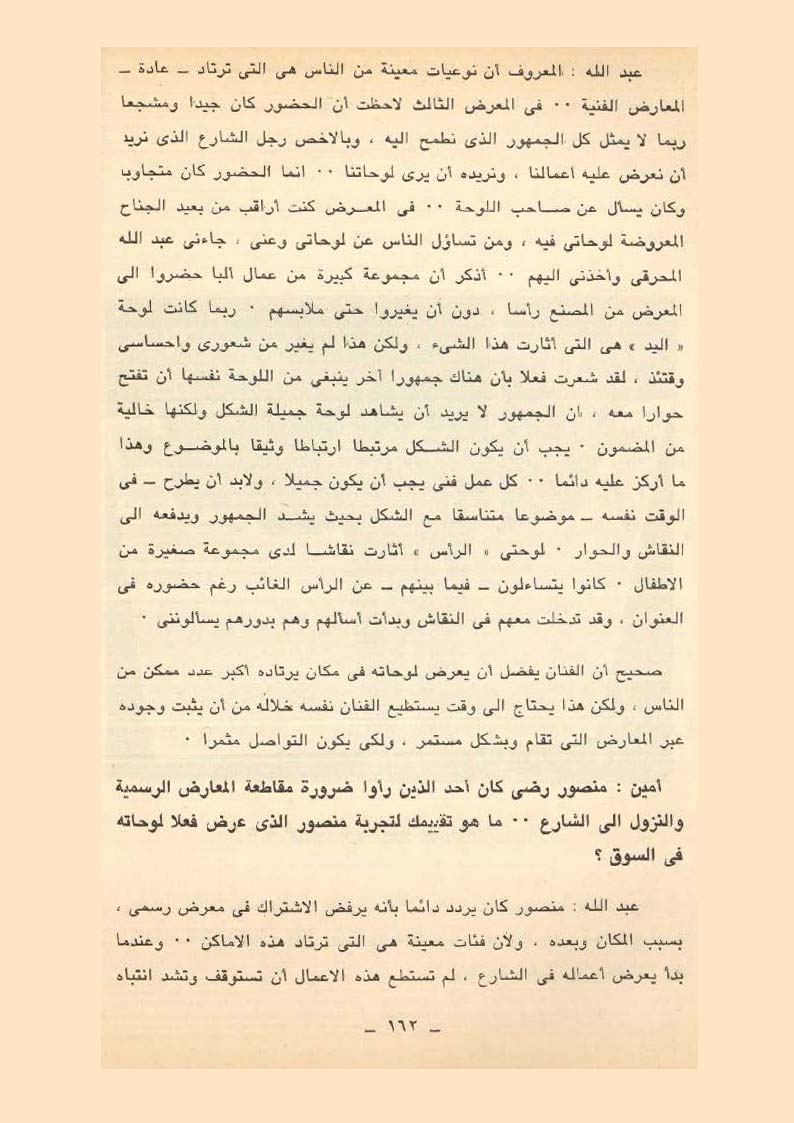 عبد الله : المعروف أن نوعيات معينة من الناس هى التى ترتاد – عادة –
المعارض الفنية ٠٠ فى المعرض الثالث لاحظت أن الحضور كان جيدا ومشجعا
ربما لا يمثل كل الجمهور الذى نطمح اليه ، وبالاخص رجل الشارع الذى نريد
أن نعرض عليه أعمالنا ، ونريده أن يرى لوحاتنا ٠٠ انما الحضور كان متجاوبا
وكان يسأل عن صـاحب اللوحة ٠٠ فى المعـرض كنت أراقب من بعيد الجناح
المعروضة لوحاتى فيه ، ومن تساؤل الناس عن لوحاتى وعنى ، جاءنى عبد الله
المحرقى وأخذنى اليهم ٠٠ أذكر أن مجموعة كبيرة من عمال ألبا حضروا الى
المعرض من المصنع رأسا ، دون أن يغيروا حتى ملابسهم ٠ ربما كانت لوحة
« اليد » هى التى أثارت هذا الشىء ، ولكن هذا لم يغير من شعورى واحساسى
وقتئذ ، لقد شعرت فعلا بأن هناك جمهورا آخر ينبغى من اللوحة نفسها أن تفتح
حوارا معه ، ان الجمهور لا يريد أن يشاهد لوحة جميلة الشكل ولكنها خالية
من المضمون ٠ يجب أن يكون الشـكل مرتبطا ارتباطا وثيقا بالموضـوع وهذا
ما أركز عليه دائما ٠٠ كل عمل فنى يجب أن يكون جميلا ، ولابد أن يطرح – فى
الوقت نفسه – موضوعا متناسقا مع الشكل بحيث يشـد الجمهور ويدفعه الى
النقاش والحوار ٠ لوحتى « الرأس » أثارت نقاشـا لدى مجموعة صغيرة من
الاطفال ٠ كانوا يتساءلون – فيما بينهم – عن الرأس الغائب رغم حضوره فى
العنوان ، وقد تدخلت معهم فى النقاش وبدأت أسألهم وهم بدورهم يسألوننى ٠
صحيح أن الفنان يفضل أن يعرض لوحاته فى مكان يرتاده أكبر عدد ممكن من
الناس ، ولكن هذا يحتاج الى وقت يستطيع الفنان نفسه خلاله من أن يثبت وجوده
عبر المعارض التى تقام وبشكل مستمر ، ولكى يكون التواصل مثمرا ٠
أمين : منصور رضى كان أحد الذين رأوا ضرورة مقاطعة المعارض الرسمية
والنزول الى الشارع ٠٠ ما هو تقييمك لتجربة منصور الذى عرض فعلا لوحاته
فى السوق ؟
عبد الله : منصور كان يردد دائما بأنه يرفض الاشتراك فى معرض رسمى ،
بسبب المكان وبعده ، ولأن فئات معينة هى التى ترتاد هذه الاماكن ٠٠ وعندما
بدأ يعرض أعماله فى الشارع ، لم تستطع هذه الاعمال أن تستوقف وتشد انتباه
– ١٦٢ –